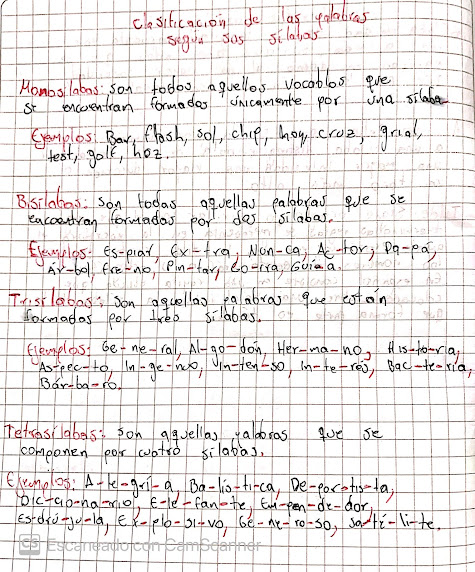 Clasificación de las palabras
según sus sílabas
Monosílabas: son todos aquellos vocablos que
se encuentran formados únicamente por una sílaba
Ejemplos: Bar, flash, sol, chip, hoy, cruz, grial,
test, golf, hoz.
Bisílabas: son todas aquellas palabras que se
encuentran formadas por dos sílabas.
Ejemplos: Es-piar, Ex-tra, Nun-ca, Ac-tor, Pa-pá,
Ár-bol, Fre-no, Pin-tar,
Trisílabas: son aquellas palabras que están
formadas por tres sílabas.
Ejemplos: Ge-ne-ral, Al-go-dón, Her-ma-no, His-to-ria,
As-pec-to, In-ge-nuo, In-ten-so, In-te-rés, Bac-te-ria,
Bár-ba-ro.
Tetrasílabas: son aquellas palabras que se
componen por cuatro sílabas.
Ejemplos: A-le-grí-a, Ba-lís-ti-ca, De-por-tis-ta,
Dic-cio-na-rio, E-le-fan-te,
Es-drú-ju-la, Ex-plo-si-vo, Ge-ne-ro-so, sa-té-li-te.
CS Escaneado con CamScanner